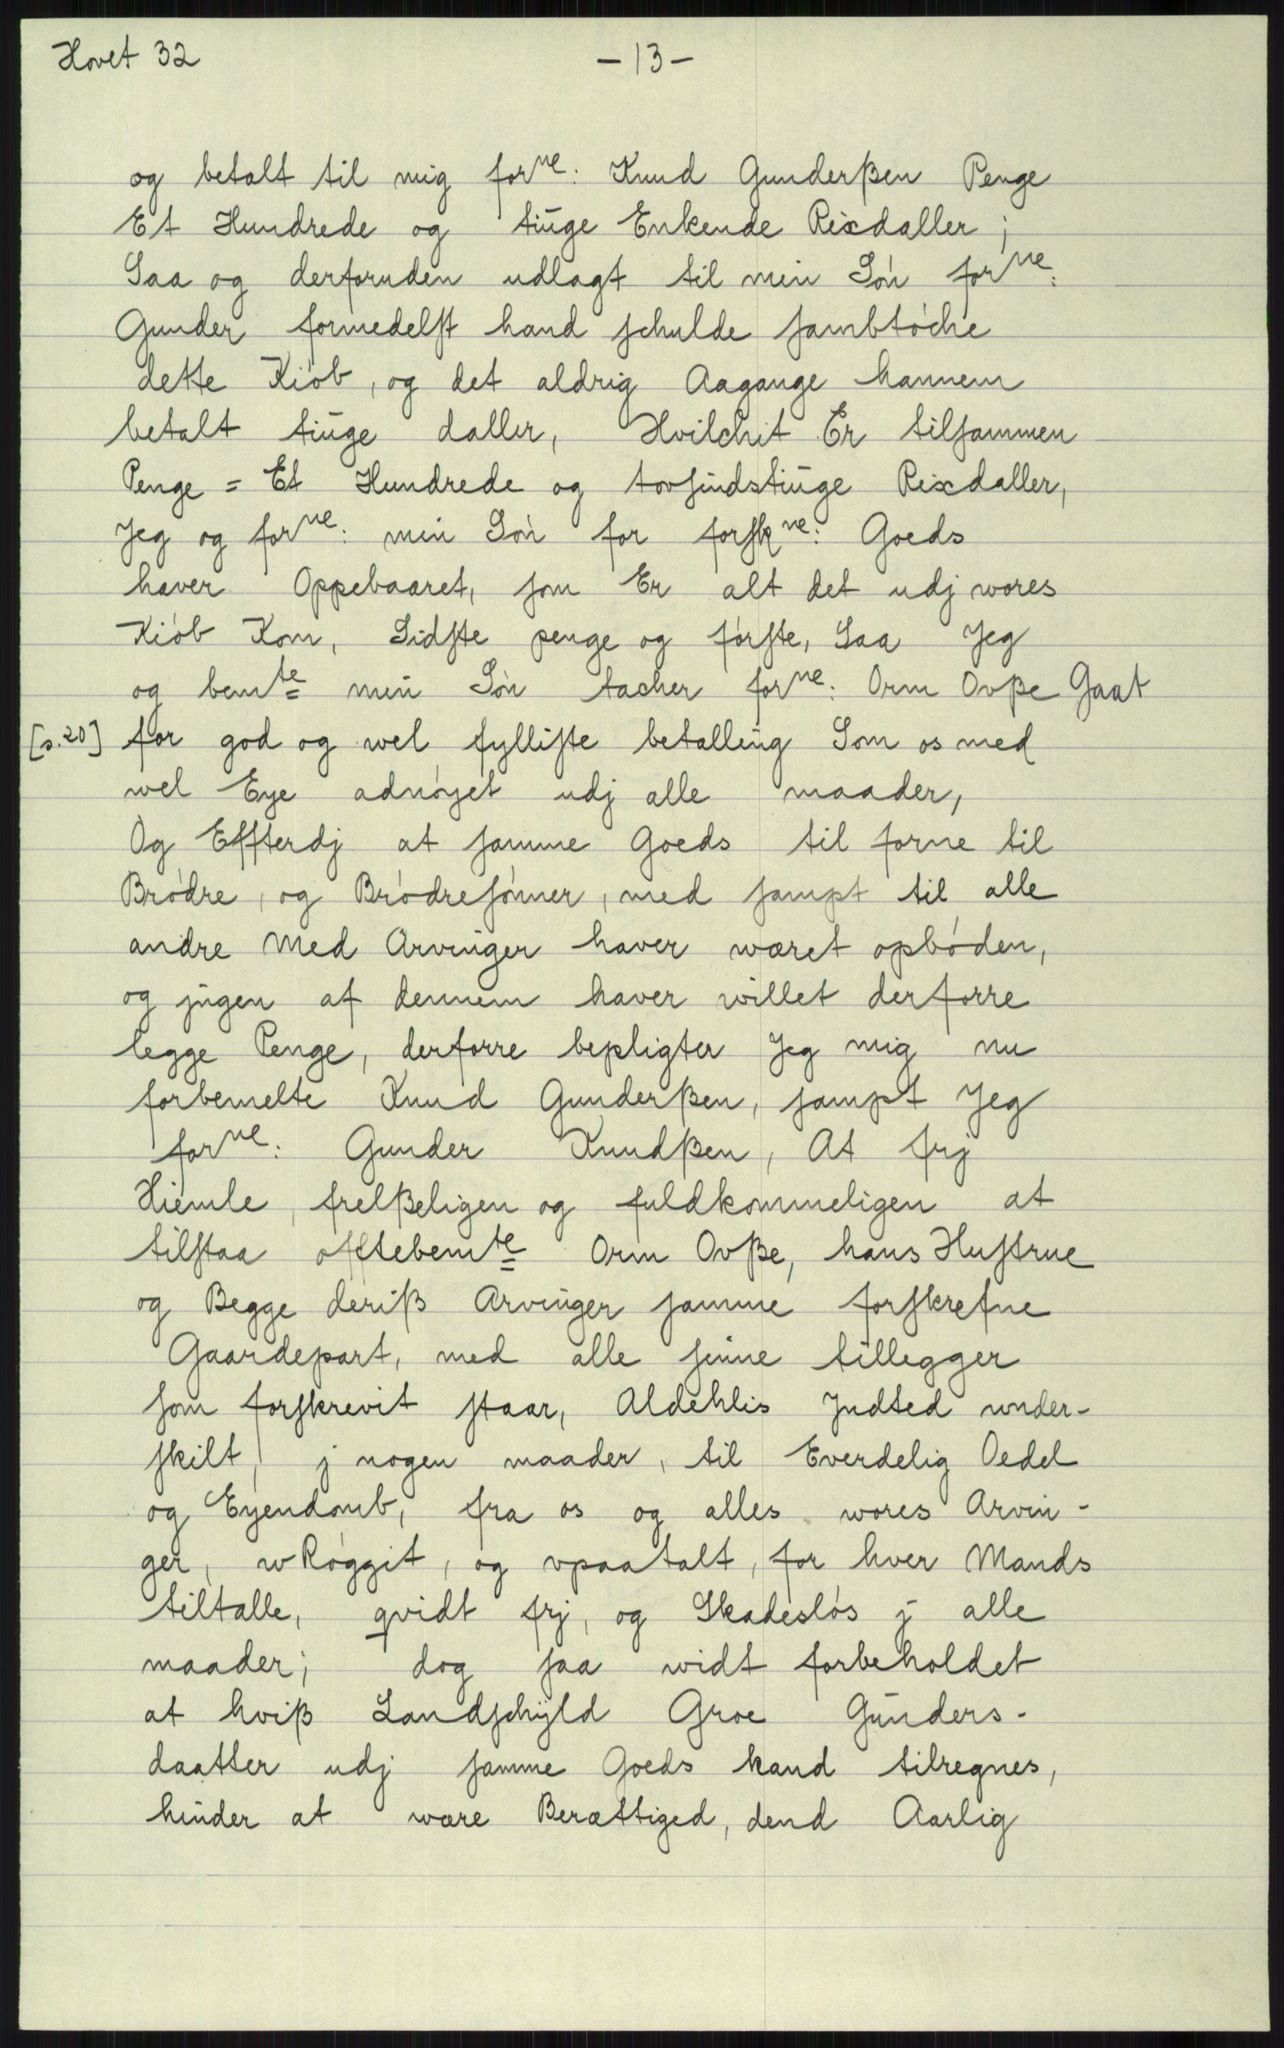 Hovet 32
- 13 -
og betalt til mig forne: Knud Gunderßen Penge
Et Hundrede og tiuge Enkende Rixdaller;
Saa og derforuden udlagt til min Søn forne:
Gunder formedelst hand schulde sambtøche
dette Kiøb, og det aldrig Aagange hannem
betalt tiuge daller, Hvilchit Er tilsammen
Penge = Et Hundrede og tovsindstiuge Rixdaller,
Jeg og forne: min Søn for forskne: Goeds
haver Oppebaaret, som Er alt det udj wores
Kiøb Kom, Sidste penge og første, Saa Jeg
og bemte min Søn tacher forne: Orm Ovße Gaat
[s.20] for god og wel fylliste betalling Som os med
wel Eye adnøyet udj alle maader,
Og Effterdj at samme Goeds til forne til
Brødre, og Brødresønner, med sampt til alle
andre Med Arvinger haver wæret opbøden,
og jngen af dennem haver willet derforre
legge Penge, derforre bepligter Jeg mig nu
forbemelte Knud Gunderßen, sampt Jeg
forne: Gunder Knudßen, At frj
Hiemle, frelßeligen og fuldkommeligen at
tilstaa offtebemte Orm Ovße, hans Hustrue
og Begge deriß Arvinger samme forskrefne
Gaardepart, med alle sinne tillegger
som forskrevit staar, Aldehlis Jndted under-
skilt, j nogen maader, til Everdelig Oedel
og Eyendomb, fra os og alles wores Arvin-
ger, wRøggit, og vpaatalt, for hver Mands
tiltalle, qvidt frj, og Skadesløs j alle
maader; dog saa widt forbeholdet
at hviß Landschyld Groe Gunders-
daatter udj samme Goeds kand tilregnes,
hinder at wære Berættiged, dend Aarlig